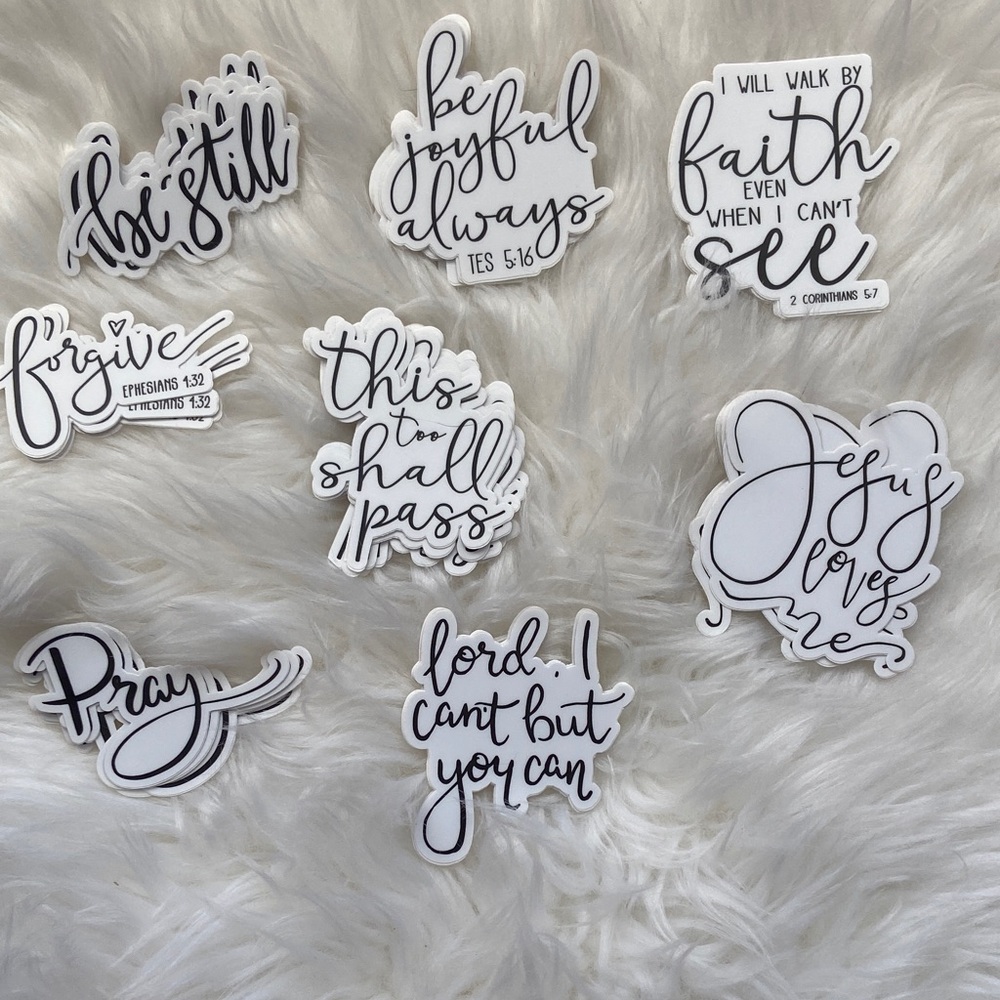 be still
be
joyful
always
TES 5:16
I WILL WALK BY
faith
EVEN
WHEN I CAN'T
see
2 CORINTHIANS 5:7
forgive
EPHESIANS 4:32
EPHESIANS 4:32
4:32
this
too
shall
pass
Jesus
loves
me
Pray
lord, I
can't but
you can